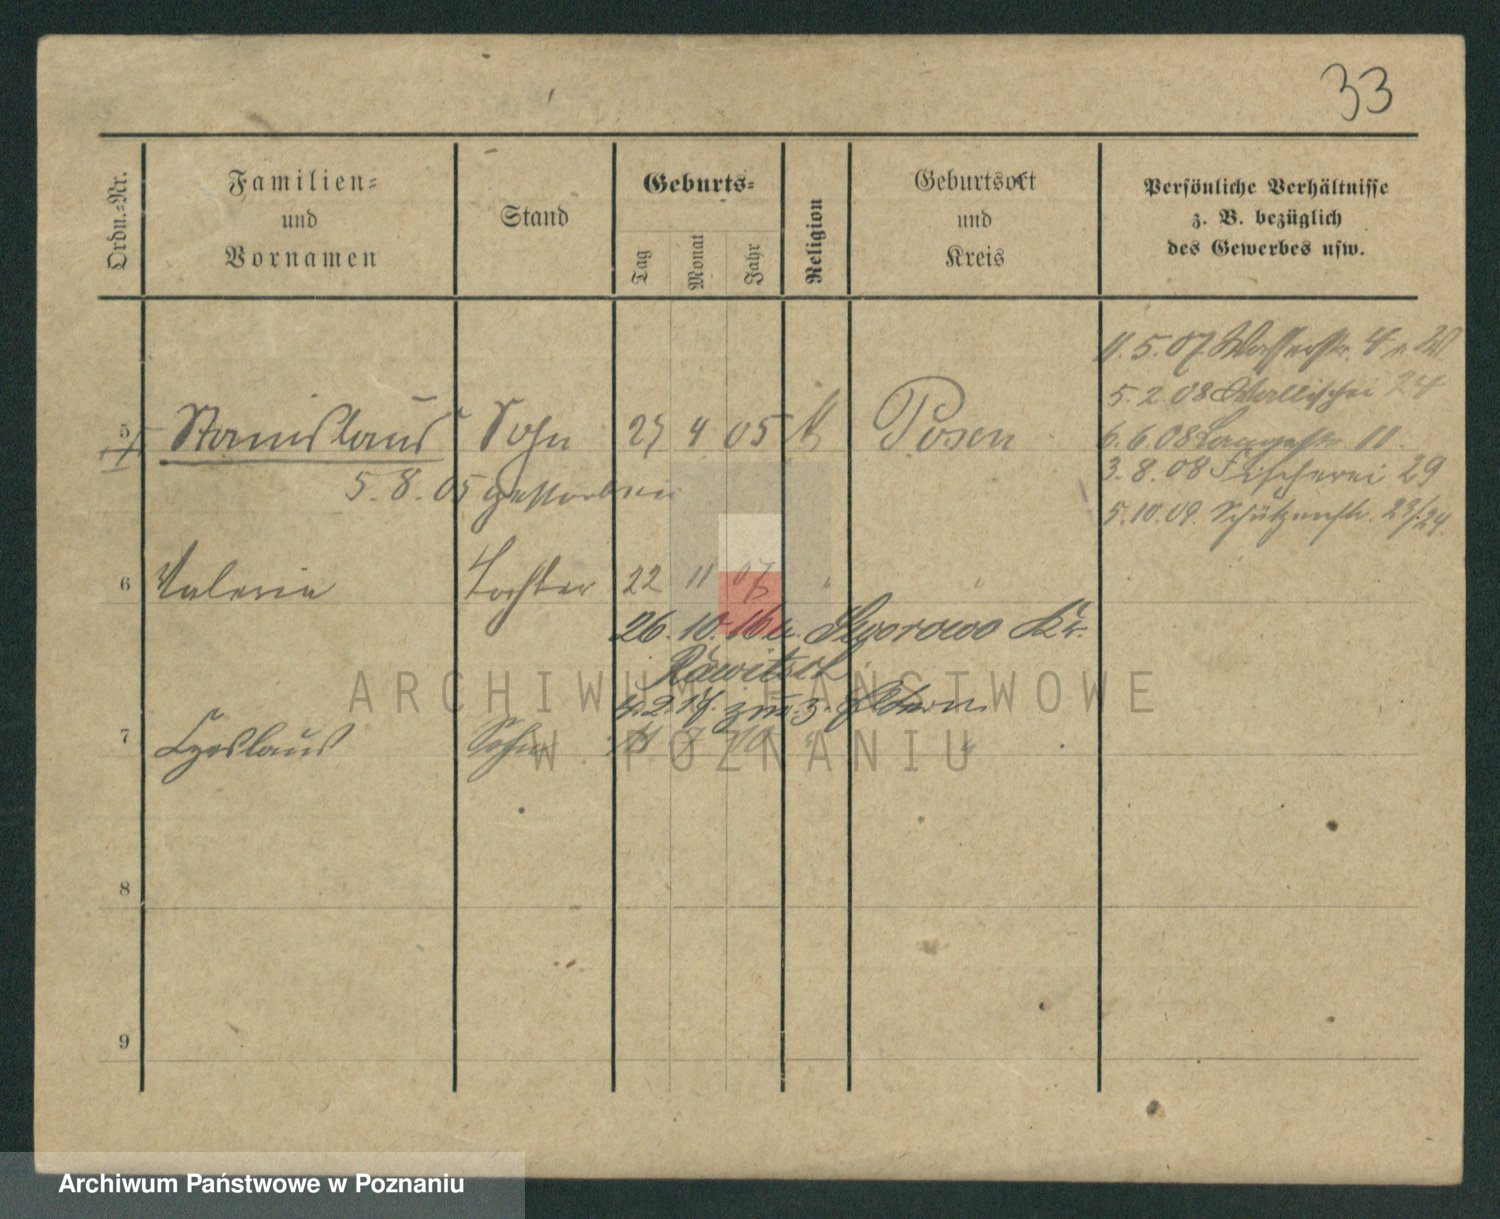 33
Ordn.-Nr.
Familien-
und
Vornamen
Stand
Geburts-
Tag
Monat
Jahr
Religion
Geburtsort
und
Kreis
Persönliche Verhältnisse
z. B. bezüglich
des Gewerbes usw.
11.5.07 Wasserstr. 4
5.2.08 Wallischei 24
6.6.08 Langestr. 11.
3.8.08 Fischerei 29
5.10.09. Schützenstr. 23/24.
5 Stanislaus Sohn 27 4 05 k Posen
5.8.05 gestorben
6 Valeria Tochter 22 11 07 " "
26.10.16 n. Kr.
Rawitsch
4.2.17 zur. z. Eltern
7 Czeslaus Sohn " "
8
9
ARCHIWUM PAŃSTWOWE
W POZNANIU
Archiwum Państwowe w Poznaniu